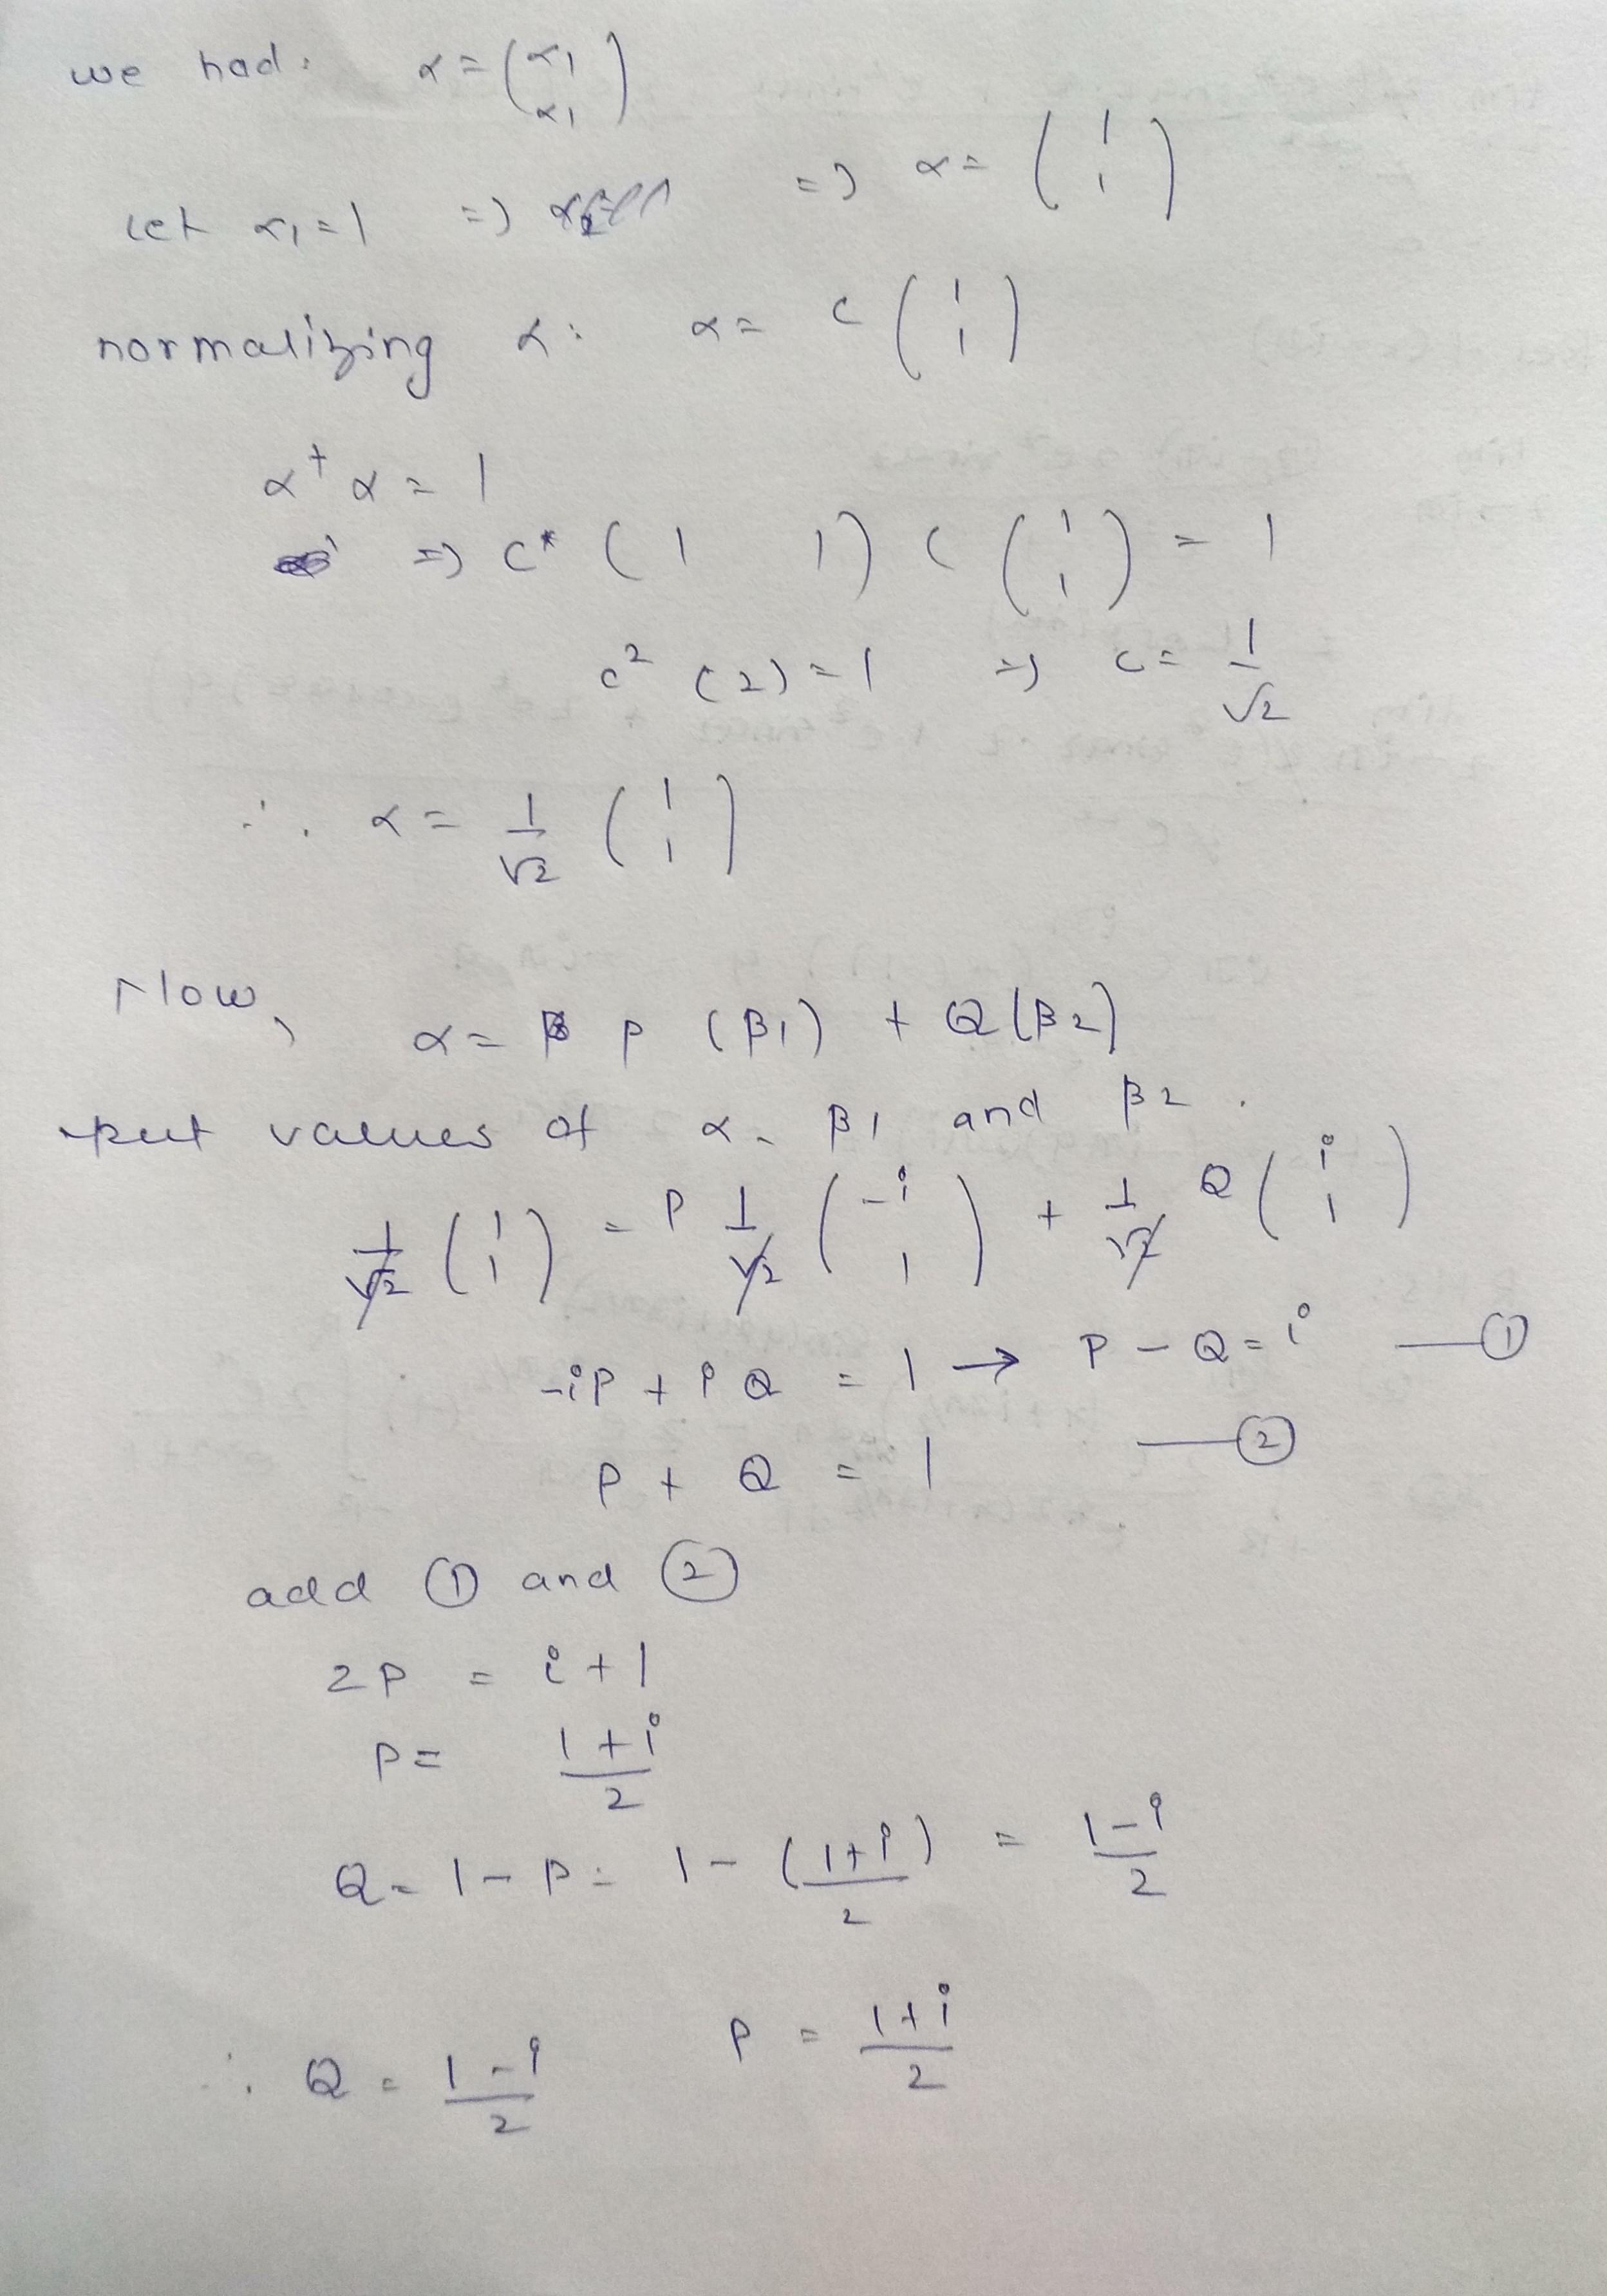 we had: α = (α1 α1)
let α1 = 1 => => α = (1 1)
normalizing α: α = c (1 1)
α† α = 1
=> c* (1 1) c (1 1) = 1
c² (2) = 1 => c = 1/√2
∴ α = 1/√2 (1 1)
Now, α = P (β1) + Q (β2)
put values of α, β1 and β2.
1/√2 (1 1) = P 1/√2 (-i 1) + 1/√2 Q (i 1)
-iP + iQ = 1 → P - Q = i —①
P + Q = 1 —②
add ① and ②
2P = i + 1
P = 1+i/2
Q = 1 - P = 1 - (1+i)/2 = 1-i/2
∴ Q = 1-i/2 P = 1+i/2